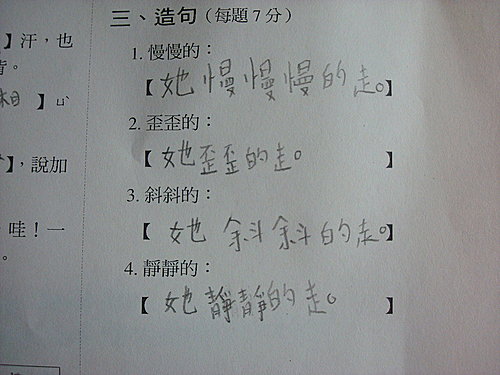 三、造句（每題7分）
】汗，也
1. 慢慢的：
背。
【 她慢慢慢的走。】
】ㄩˋ
2. 歪歪的：
【 她歪歪的走。 】
】，說加
3. 斜斜的：
哇！一
【 她斜斜的走。】
。
4. 靜靜的：
【 她靜靜的走。 】